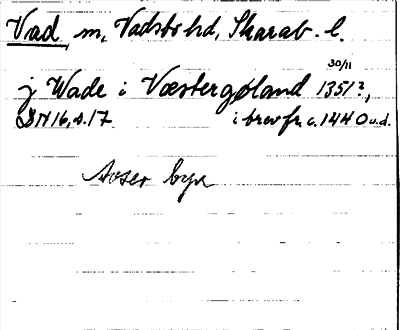 Vad, m, Vadsbo hd, Skarab. l.
30/11
j Wade i Væstergøland 1351?,
DN 16, s. 17 i brev fr. c. 1440 u.d.
avser byn